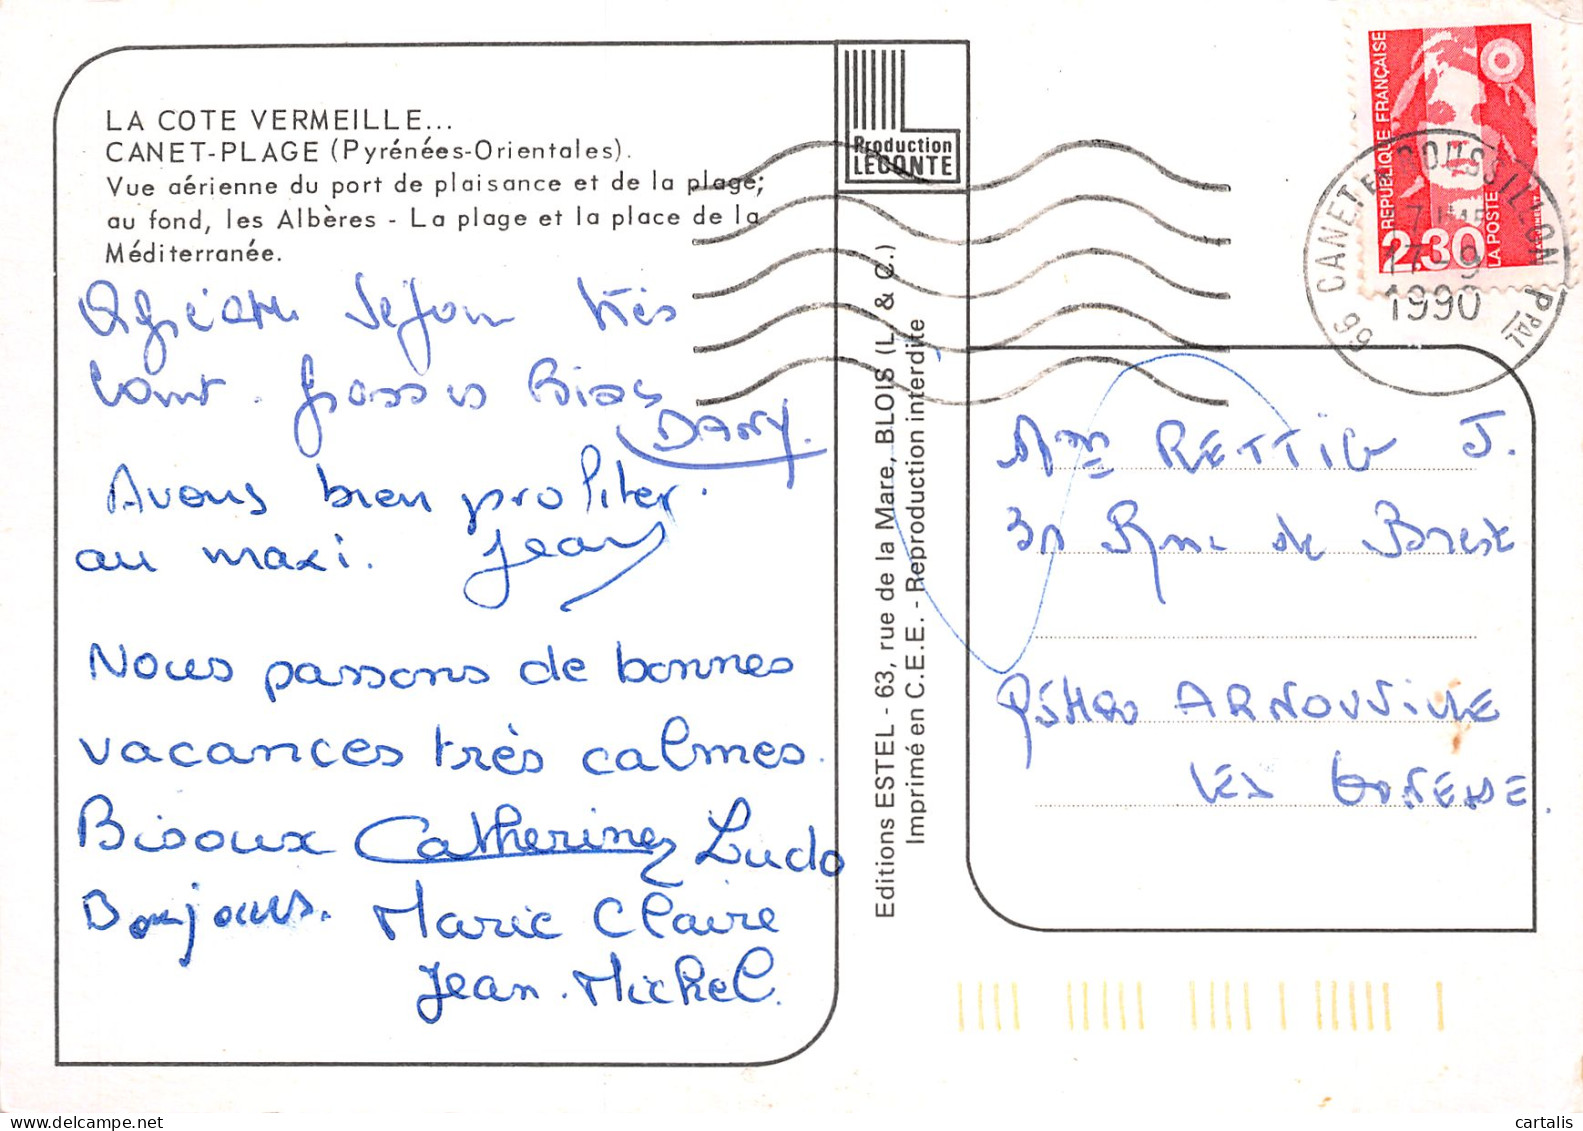 LA COTE VERMEILLE...
CANET-PLAGE (Pyrénées-Orientales).
Vue aérienne du port de plaisance et de la plage;
au fond, les Albères - La plage et la place de la
Méditerranée.
Production
LECONTE
REPUBLIQUE FRANÇAISE
2,30
LA POSTE
66 CANET EN ROUSSILLON PPAL
17-9
1990
Agréable séjour très
court. Grosses Bises
DANY.
Avons bien profiter.
au maxi. Jean
Nous passons de bonnes
vacances très calmes.
Bisoux Catherine Ludo
Bonjours. Marie Claire
Jean-Michel.
Editions ESTEL - 63, rue de la Mare, BLOIS (L. & C.)
Imprimé en C.E.E. - Reproduction interdite
Mme RETTIG J.
Rue de Brest
95400 ARNOUVILLE
LES GONESSE.
cartalis